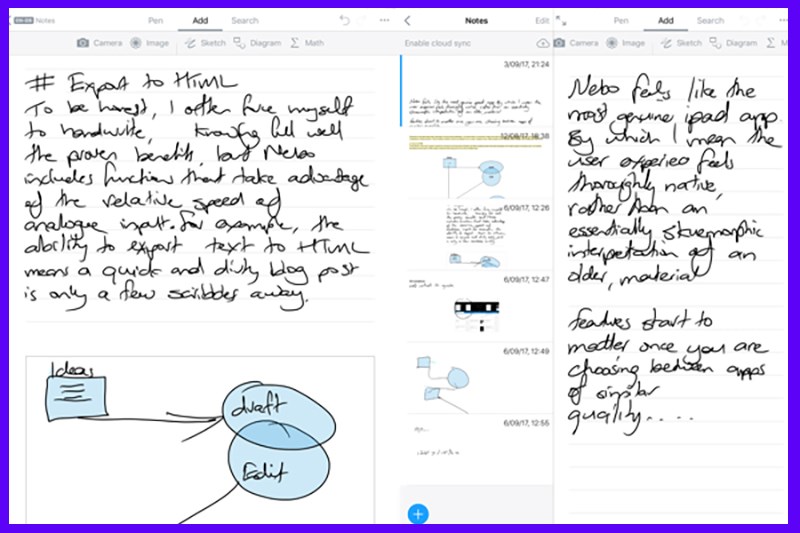 Notes
Pen
Add
Search
Camera
Image
Sketch
Diagram
Math
# Export to HTML
To be honest, I often force myself
to handwrite, knowing full well
the proven benefits, but Nebo
includes functions that take advantage
of the relative speed of
analogue input. For example, the
ability to export text to HTML
means a quick and dirty blog post
is only a few scribbles away.
Ideas
draft
Edit
Notes
Edit
Enable cloud sync
3/09/17, 21:24
12/08/17, 18:38
6/09/17, 12:26
6/09/17, 12:47
6/09/17, 12:49
6/09/17, 12:55
Pen
Add
Search
Camera
Image
Sketch
Diagram
M
Nebo feels like the
most genuine ipad app.
By which I mean the
user experience feels
thoroughly native,
rather than an
essentially skeuomorphic
interpretation of an
older, material
features start to
matter once you are
choosing between apps
of similar
quality....